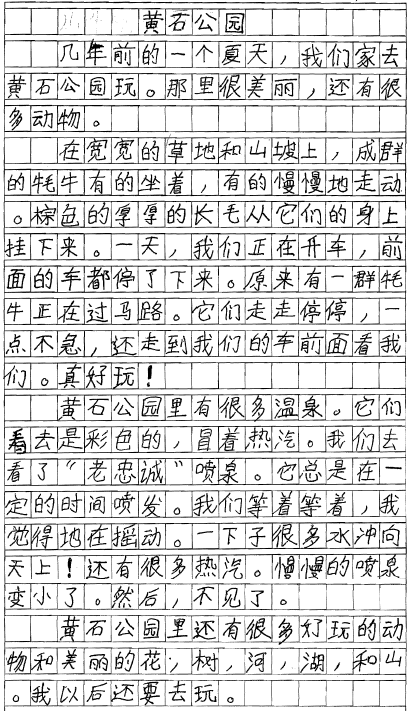 黄石公园
几年前的一个夏天，我们家去
黄石公园玩。那里很美丽，还有很
多动物。
在宽宽的草地和山坡上，成群
的牦牛有的坐着，有的慢慢地走动
。棕色的厚厚的长毛从它们的身上
挂下来。一天，我们正在开车，前
面的车都停了下来。原来有一群牦
牛正在过马路。它们走走停停，一
点不急，还走到我们的车前面看我
们。真好玩！
黄石公园里有很多温泉。它们
看去是彩色的，冒着热汽。我们去
看了“老忠诚”喷泉。它总是在一
定的时间喷发。我们等着等着，我
觉得地在摇动。一下子很多水冲向
天上！还有很多热汽。慢慢的喷泉
变小了。然后，不见了。
黄石公园里还有很多好玩的动
物和美丽的花，树，河，湖，和山
。我以后还要去玩。